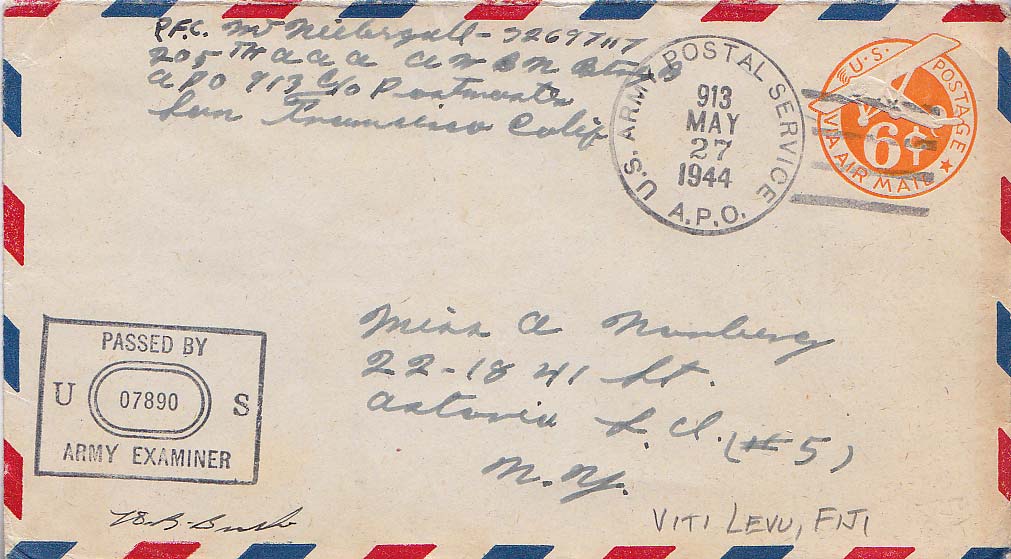 P.F.C. M Niebergall - 32697117
205TH AAA AW BN Btry B
APO 913 C/o Postmaster
San Francisco Calif
U.S. ARMY POSTAL SERVICE
913
MAY
27
1944
A.P.O.
U.S. POSTAGE
6¢
VIA AIR MAIL
Miss A Nurnberg
22-18 41 St.
Astoria L.I. (#5)
N.Y.
PASSED BY
U 07890 S
ARMY EXAMINER
VITI LEVU, FIJI